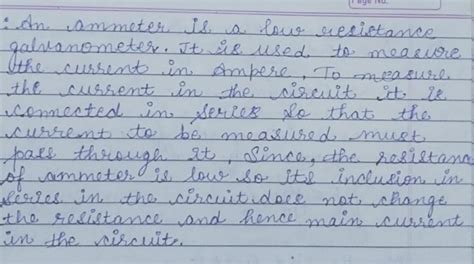 Page No.
: An ammeter is a low resistance
galvanometer. It is used to measure
the current in ampere. To measure
the current in the circuit it is
connected in series so that the
current to be measured must
pass through it, Since, the resistanc
of ammeter is low so its inclusion in
series in the circuit does not change
the resistance and hence main current
in the circuit.